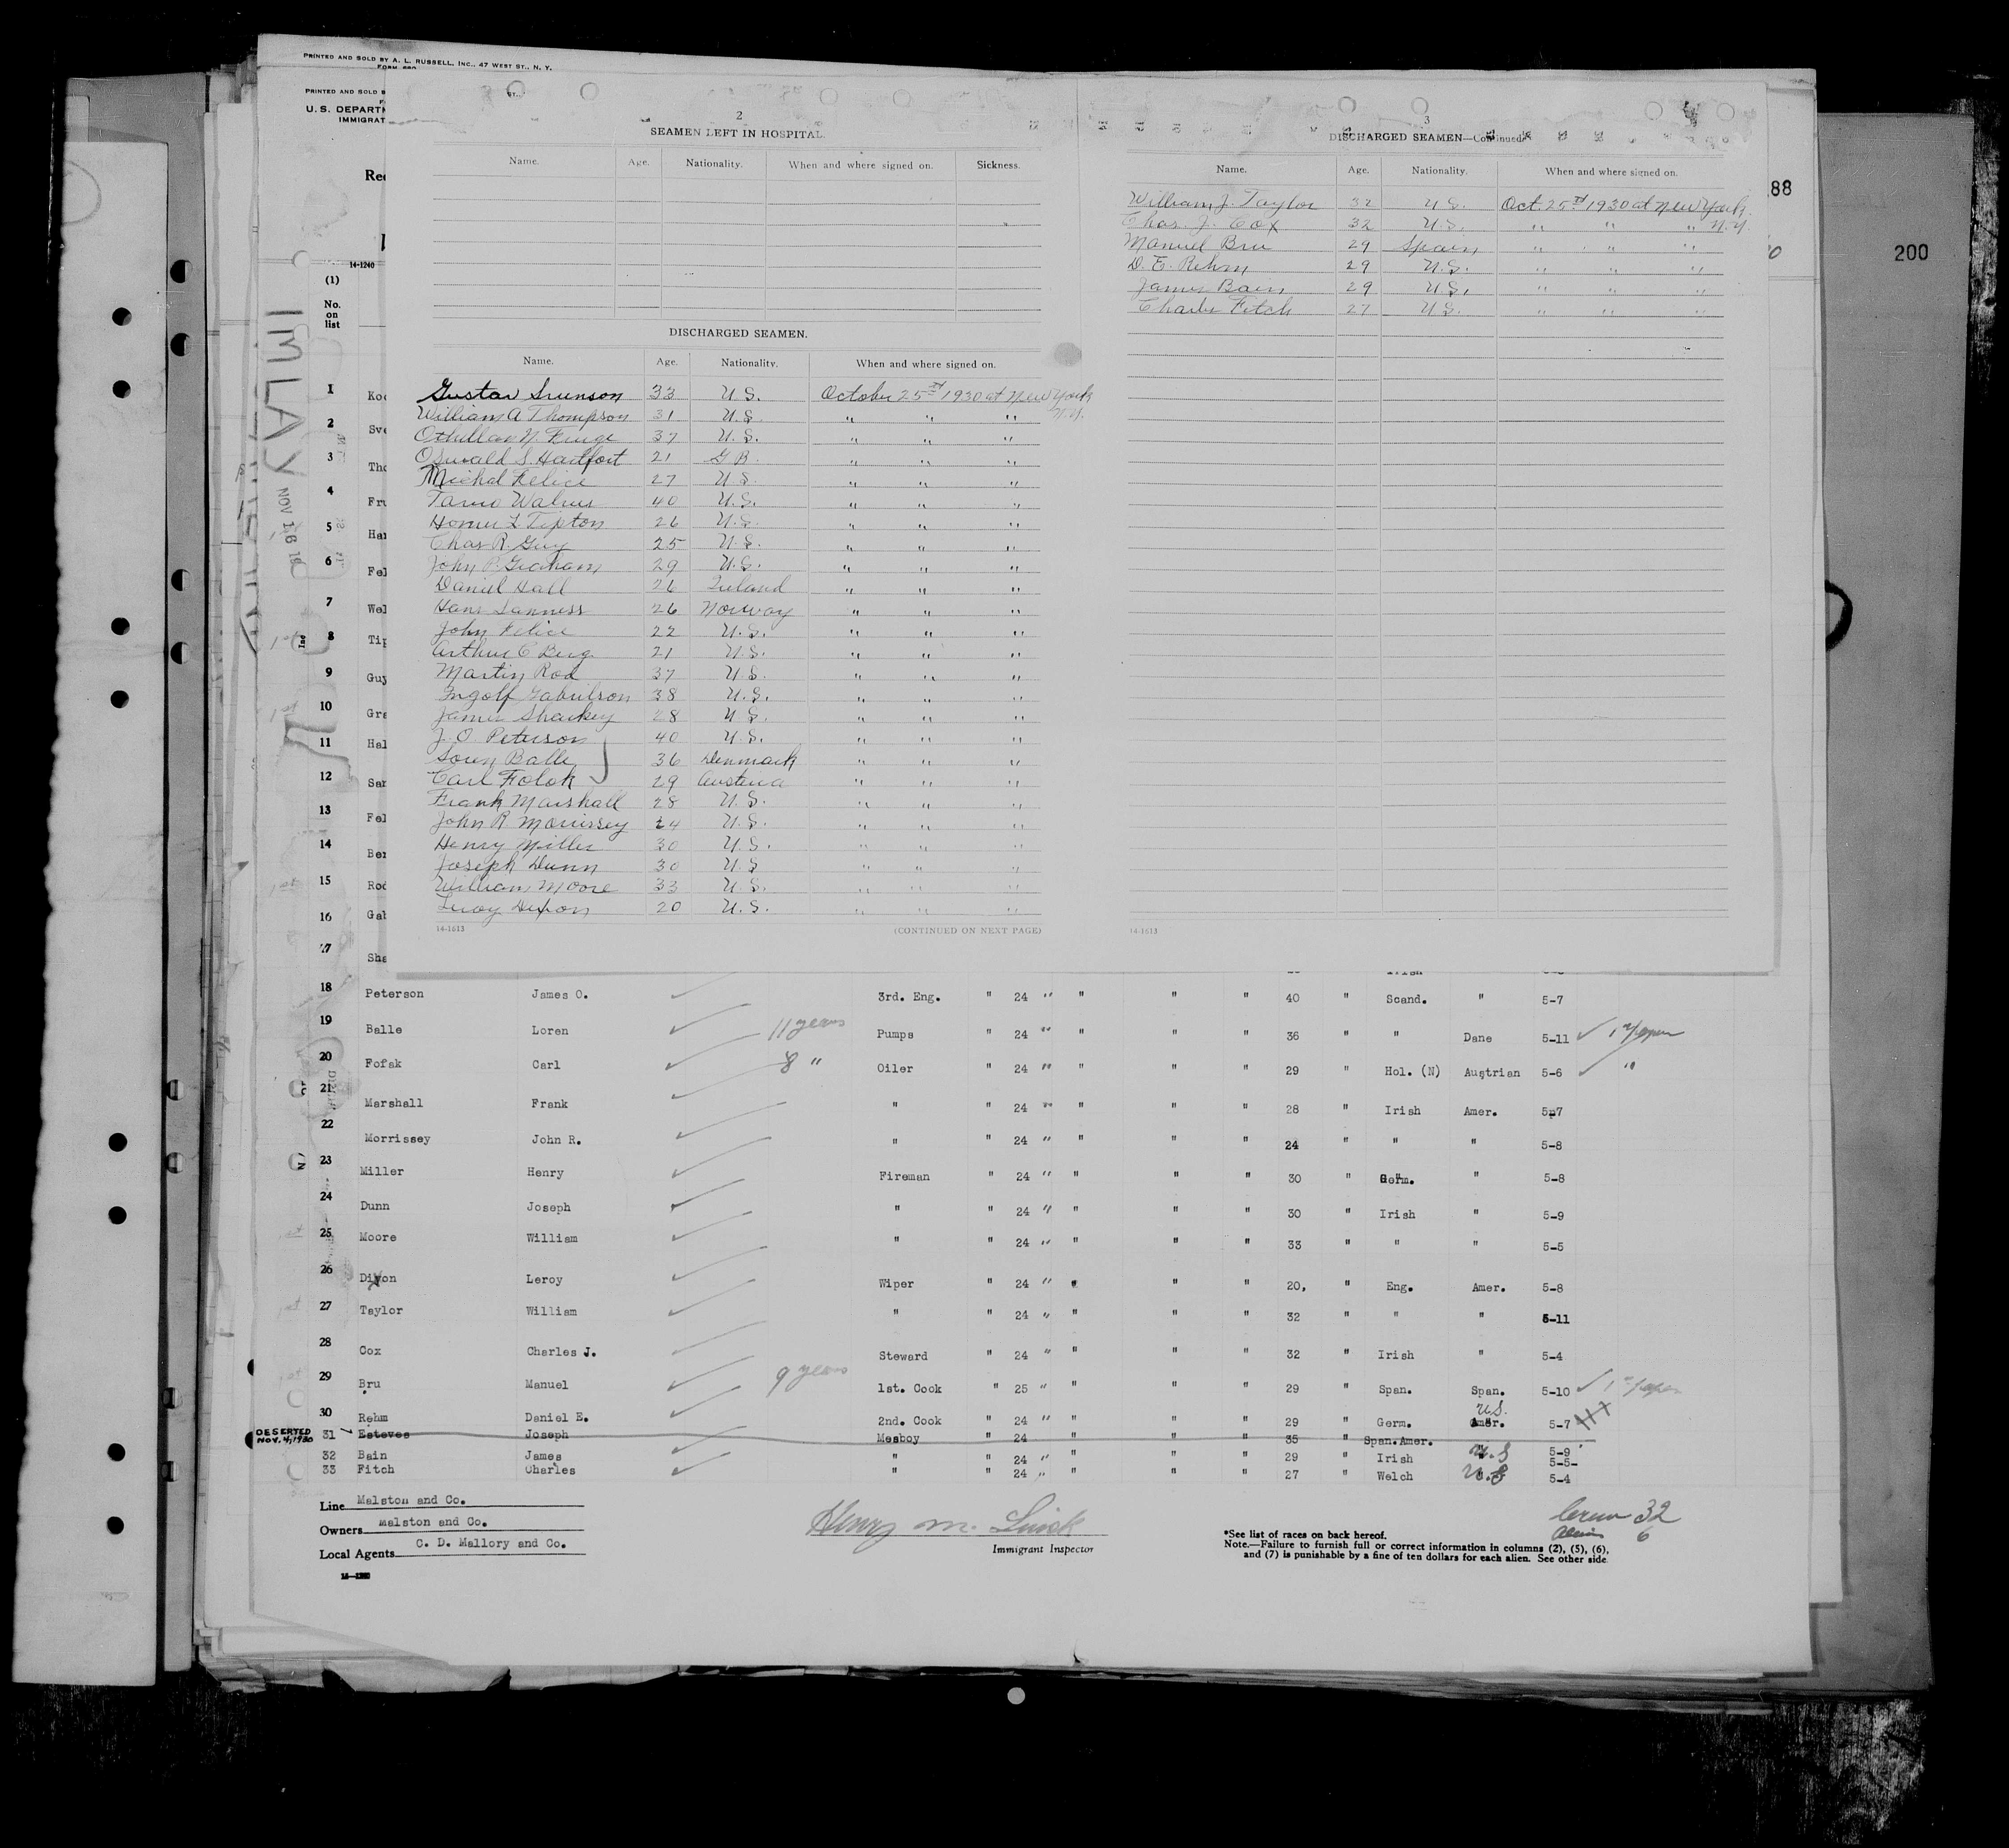 PRINTED AND SOLD BY A. L. RUSSELL, INC., 47 WEST ST., N. Y.
PRINTED AND SOLD B
U.S. DEPARTM
IMMIGRAT
Rec
14-1240
(1)
No.
on
list
IMLAY
2
SEAMEN LEFT IN HOSPITAL.
Name. Age. Nationality. When and where signed on. Sickness.
DISCHARGED SEAMEN.
Name. Age. Nationality. When and where signed on.
Gustav Svenson 33 U.S. October 25th 1930 at New York
N.Y.
William A Thompson 31 U.S. " " "
37 U.S. " " "
Oswald S. Hartfort 21 G B. " " "
Michal Felice 27 U.S. " " "
40 U.S. " " "
Homer L Tipton 26 U.S. " " "
Chas R. Guy 25 U.S. " " "
John P. Graham 29 U.S. " " "
Daniel Hall 26 Ireland " " "
Hans Sanness 26 Norway " " "
John Felice 22 U.S. " " "
Arthur C Berg 21 U.S. " " "
Martin Rod 37 U.S. " " "
Ingolf Gabrilson 38 U.S. " " "
James Sharkey 28 U.S. " " "
J. O. Peterson 40 U.S. " " "
Soren Balle 36 Denmark " " "
Carl Fofok 29 Austria " " "
Frank Marshall 28 U.S. " " "
John R Morrissey 24 U.S. " " "
Henry Miller 30 U.S. " " "
Joseph Dunn 30 U.S " " "
William Moore 33 U.S. " " "
Leroy Dixon 20 U.S. " " "
14-1613 (CONTINUED ON NEXT PAGE)
3
DISCHARGED SEAMEN—Continued.
Name. Age. Nationality. When and where signed on.
William J. Taylor 32 U.S. Oct. 25th 1930 at New York
Chas. J. Cox 32 U.S. " " " N.Y.
Manuel Bru 29 Spain " " "
D. E. Rehm 29 U.S. " " "
James Bain 29 U.S. " " "
Charles Fitch 27 U.S. " " "
14-1613
88
200
1 Koc
2 Sve
3 Tho
4 Fru
5 Har
6 Fel
7 Wel
8 Tip
9 Guy
10 Gra
11 Hal
12 San
13 Fel
14 Ber
15 Rod
16 Gab
17 Sha
18 Peterson James O. 3rd. Eng. " 24 " " " " 40 " Scand. " 5-7
19 Balle Loren 11 years Pumps " 24 " " " " 36 " " Dane 5-11
20 Fofak Carl 8 " Oiler " 24 " " " " 29 " Hol. (N) Austrian 5-6 "
21 Marshall Frank " " 24 " " " " 28 " Irish Amer. 5-7
22 Morrissey John R. " " 24 " " " " 24 " " " 5-8
23 Miller Henry Fireman " 24 " " " " 30 " Germ. " 5-8
24 Dunn Joseph " " 24 " " " " 30 " Irish " 5-9
25 Moore William " " 24 " " " " 33 " " " 5-5
26 Dixon Leroy Wiper " 24 " " " " 20, " Eng. Amer. 5-8
27 Taylor William " " 24 " " " " 32 " " " 5-11
28 Cox Charles J. Steward " 24 " " " " 32 " Irish " 5-4
29 Bru Manuel 9 years 1st. Cook " 25 " " " " 29 " Span. Span. 5-10
30 Rehm Daniel E. 2nd. Cook " 24 " " " " 29 " Germ. Amer. U.S. 5-7
DESERTED
NOV. 4, 1930
31 Esteves Joseph Mesboy " 24 " " " 35 " Span. Amer. 5-9
32 Bain James " " 24 " " " " 29 " Irish U.S 5-6
33 Fitch Charles " " 24 " " " " 27 " Welch U.S 5-4
Line Malston and Co.
Owners Malston and Co.
Local Agents C. D. Mallory and Co.
Immigrant Inspector
*See list of races on back hereof.
Note.—Failure to furnish full or correct information in columns (2), (5), (6),
and (7) is punishable by a fine of ten dollars for each alien. See other side.
Crew 32
Aliens 6